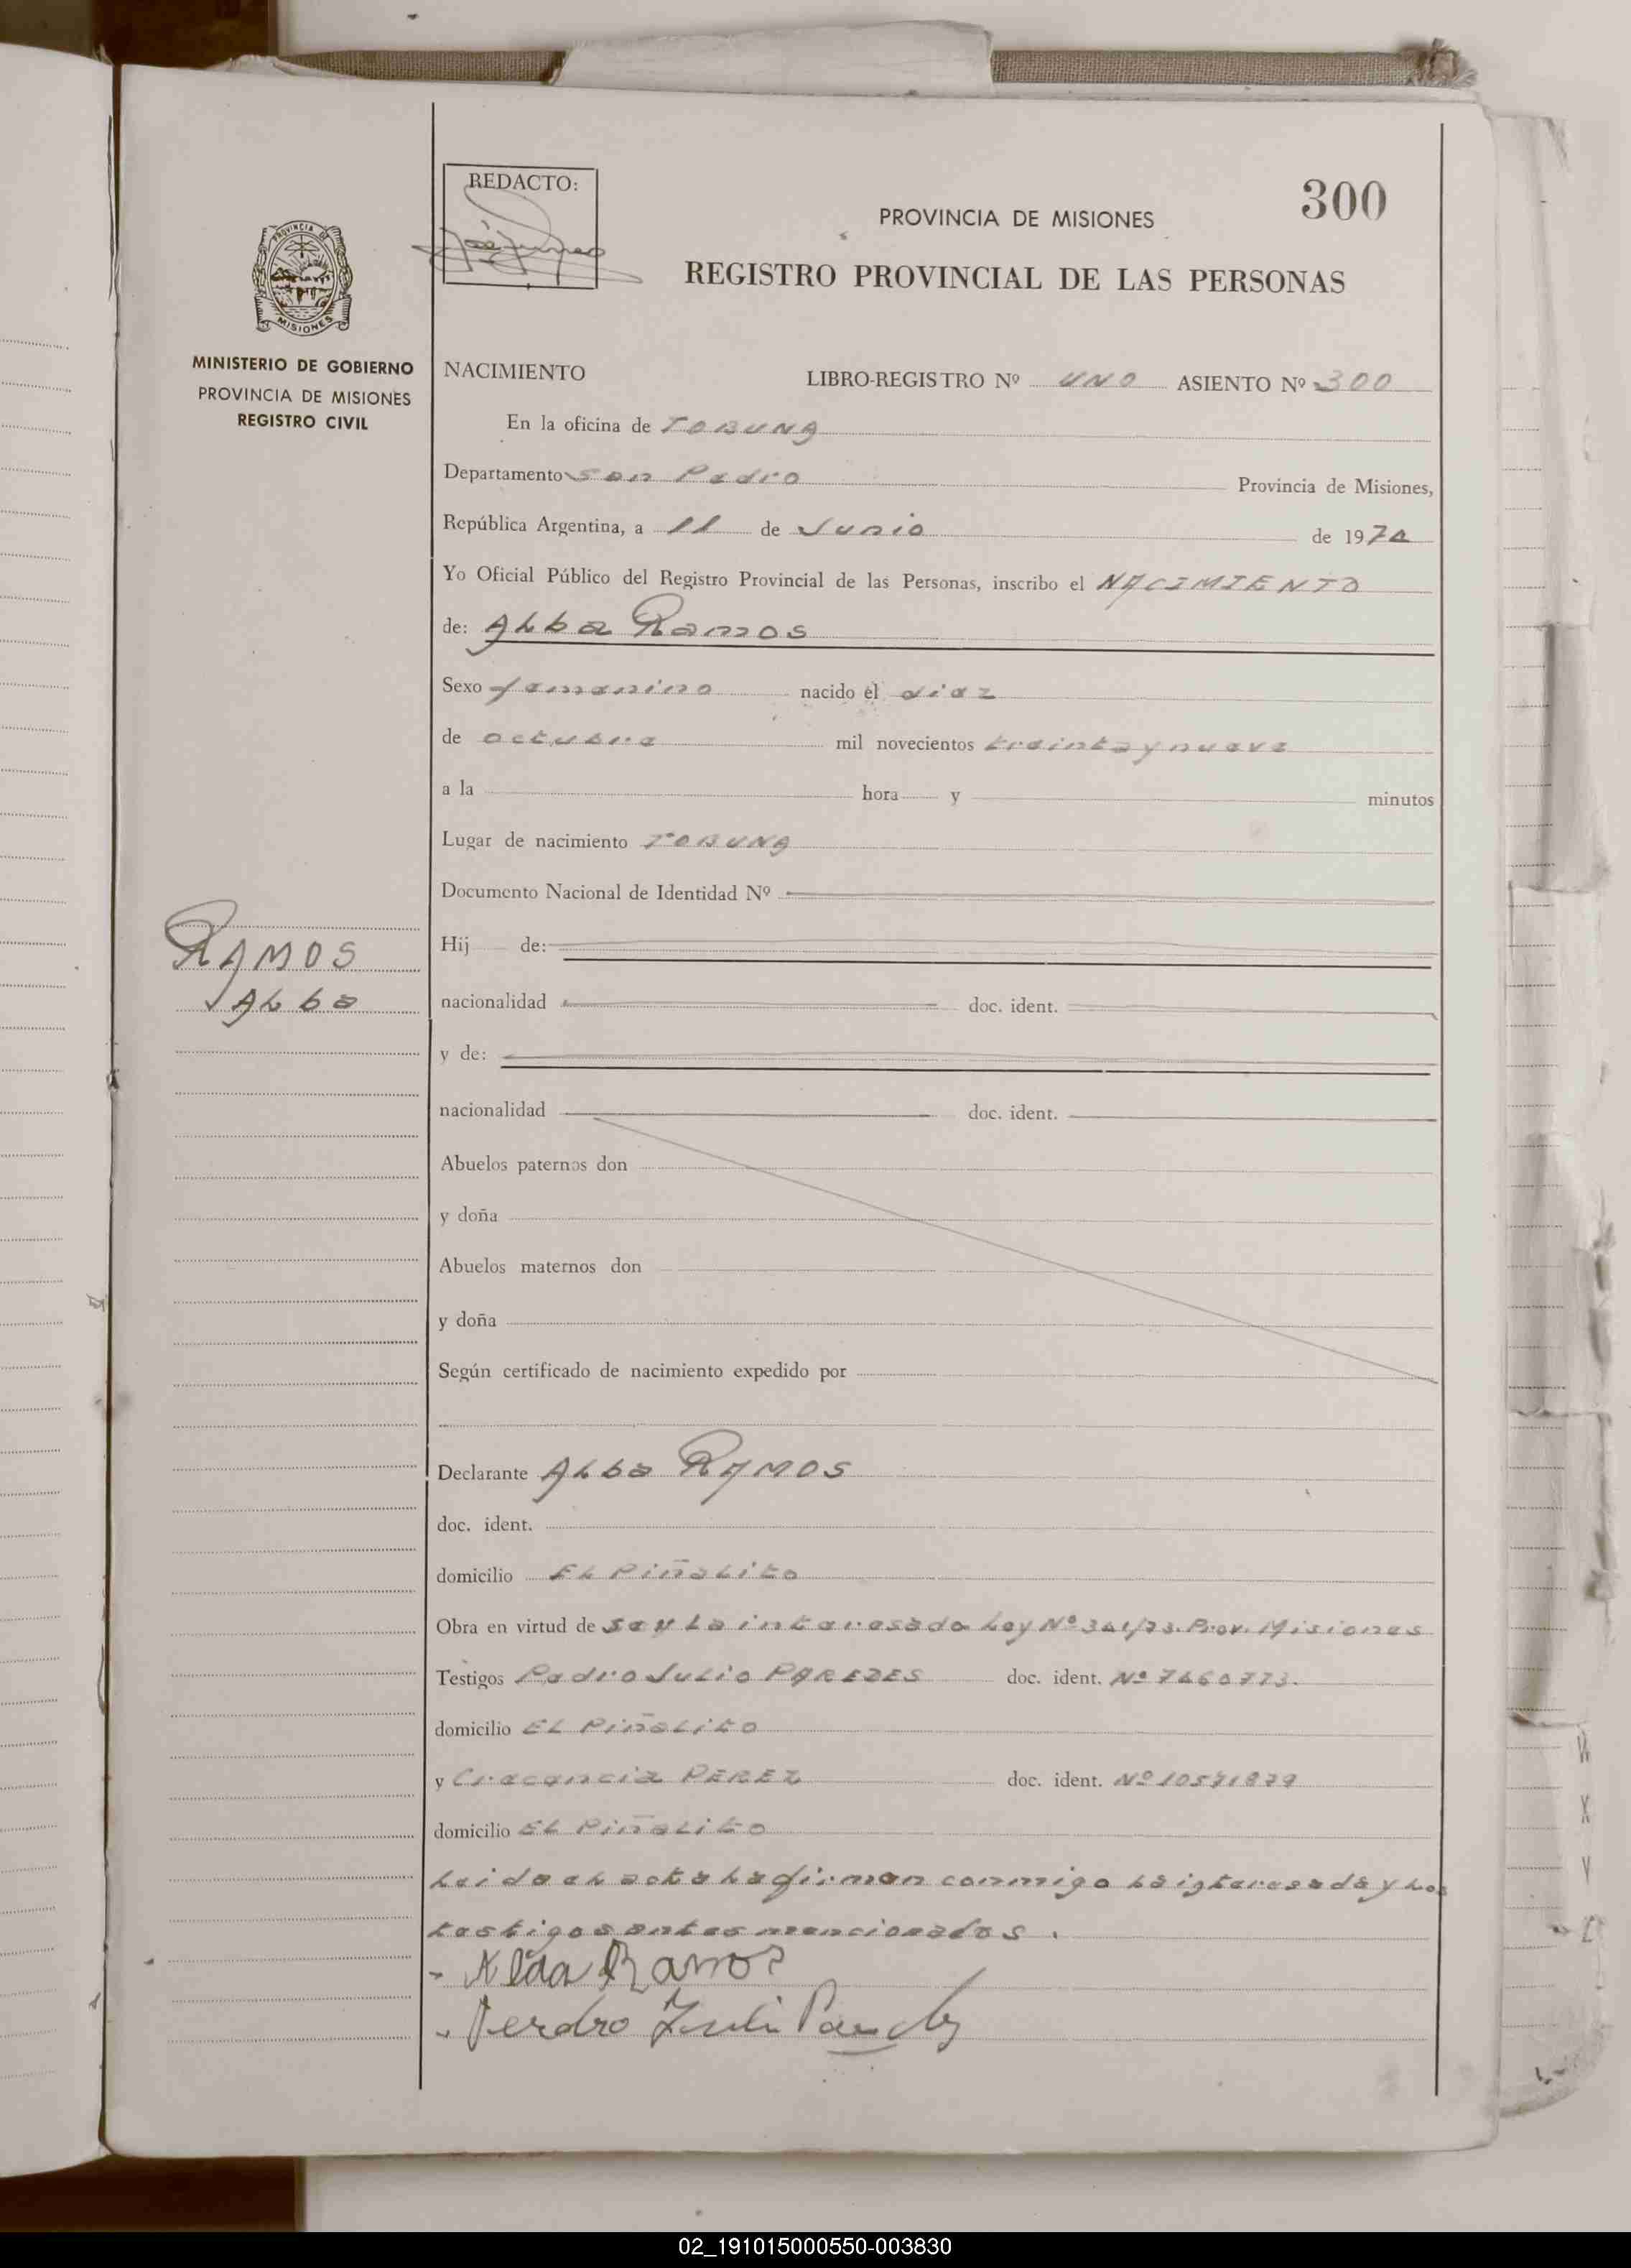 REDACTO:
300
PROVINCIA DE MISIONES
REGISTRO PROVINCIAL DE LAS PERSONAS
PROVINCIA DE
MISIONES
MINISTERIO DE GOBIERNO
PROVINCIA DE MISIONES
REGISTRO CIVIL
NACIMIENTO LIBRO-REGISTRO Nº UNO ASIENTO Nº 300
En la oficina de TOBUNA
Departamento San Pedro Provincia de Misiones,
República Argentina, a 11 de Junio de 1974
Yo Oficial Público del Registro Provincial de las Personas, inscribo el NACIMIENTO
de: Alba Ramos
Sexo femenino nacido el diez
de octubre mil novecientos treinta y nueve
a la hora y minutos
Lugar de nacimiento TOBUNA
Documento Nacional de Identidad Nº
RAMOS
Alba
Hij de:
nacionalidad doc. ident.
y de:
nacionalidad doc. ident.
Abuelos paternos don
y doña
Abuelos maternos don
y doña
Según certificado de nacimiento expedido por
Declarante Alba RAMOS
doc. ident.
domicilio EL Piñalito
Obra en virtud de ser la interesada Ley Nº 341/73. Prov. Misiones
Testigos Pedro Julio PAREDES doc. ident. Nº 7460773.
domicilio EL Piñalito
y Crecencia PEREZ doc. ident. Nº 10571879
domicilio EL Piñalito
Leida el acta la firman conmigo la interesada y los
testigos antes mencionados.
- Alba Ramos
- Perdro Juli
02_191015000550-003830